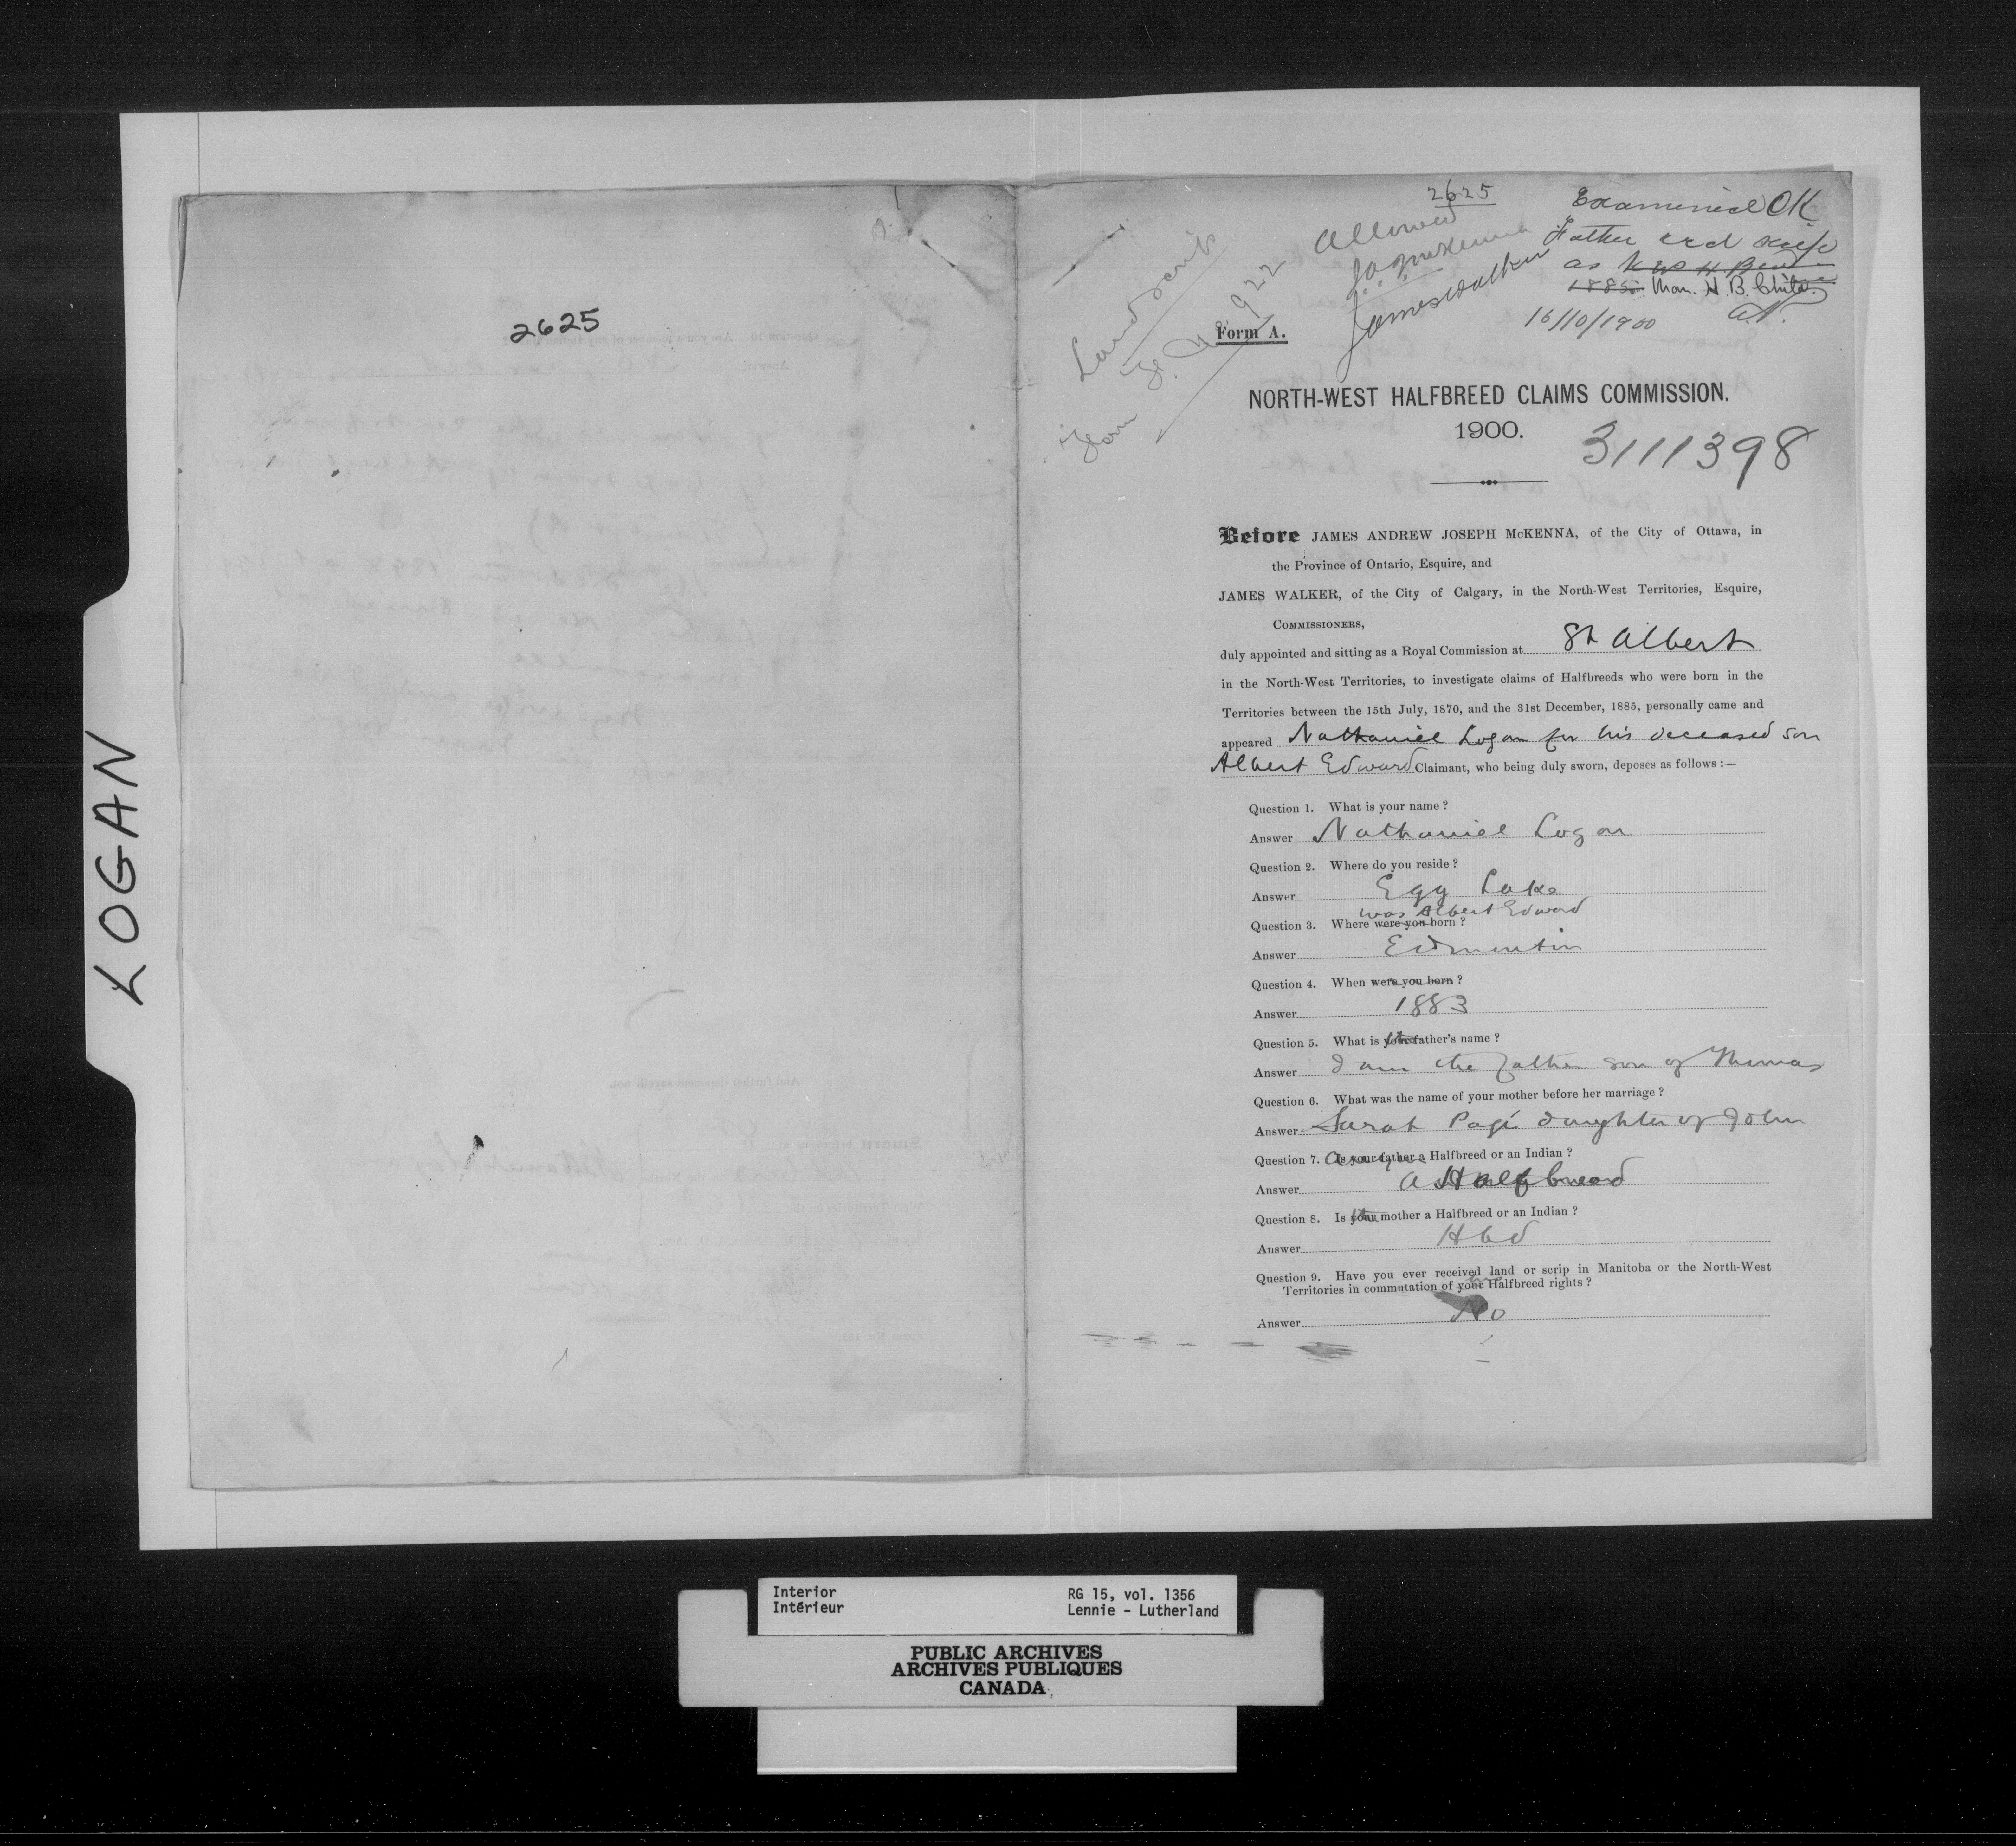 LOGAN
2625
2625
Allowed
J.A.J. McKenna
James Walker
Land Scrip
Form
922
Examined OK
Father recd scrip
as
1885 Man. H. B. Child.
16/10/1900
Form A.
NORTH-WEST HALFBREED CLAIMS COMMISSION.
1900.
3111398
Before JAMES ANDREW JOSEPH McKENNA, of the City of Ottawa, in
the Province of Ontario, Esquire, and
JAMES WALKER, of the City of Calgary, in the North-West Territories, Esquire,
COMMISSIONERS,
duly appointed and sitting as a Royal Commission at St Albert
in the North-West Territories, to investigate claims of Halfbreeds who were born in the
Territories between the 15th July, 1870, and the 31st December, 1885, personally came and
appeared Nathaniel Logan for his deceased son
Albert Edward Claimant, who being duly sworn, deposes as follows :—
Question 1. What is your name ?
Answer Nathaniel Logan
Question 2. Where do you reside ?
Answer Egg Lake
was Albert Edward
Question 3. Where were you born ?
Answer Edmonton
Question 4. When were you born ?
Answer 1883
Question 5. What is your father's name ?
Answer I am the father son of Thomas
Question 6. What was the name of your mother before her marriage ?
Answer Sarah Pagé daughter of John
Question 7. Is your father a Halfbreed or an Indian ?
Answer a Halfbreed
Question 8. Is your mother a Halfbreed or an Indian ?
Answer Hbd
Question 9. Have you ever received land or scrip in Manitoba or the North-West
Territories in commutation of your Halfbreed rights ?
Answer No
Interior
Intérieur
RG 15, vol. 1356
Lennie - Lutherland
PUBLIC ARCHIVES
ARCHIVES PUBLIQUES
CANADA